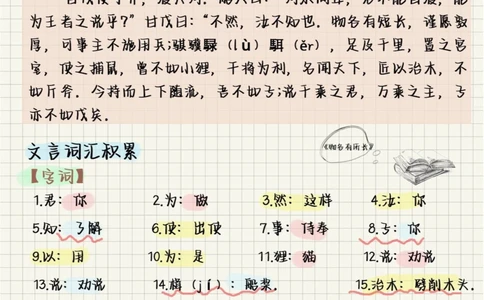 为王者之说乎?”甘戊曰:“不然,汝不知也。物各有短长,谨愿敦
厚,可事主不施用兵;骐骥騄(lù)駬(ěr),足及千里,置之宫
室,使之捕鼠,曾不如小狸,干将为利,名闻天下,匠以治木,不
如斤斧。今持而上下随流,吾不如子;说千乘之君,万乘之主,子
亦不如戊矣。
《物各有所长》
文言词汇积累
【字词】
1.君:你 2.为:做 3.然:这样 4.汝:你
5.知:了解 6.使:出使 7.事:侍奉 8.子:你
9.以:用 10.为:是 11.狸:猫 12.说:劝说
13.说:劝说 14.楫(jí):船桨. 15.治木:劈削木头.